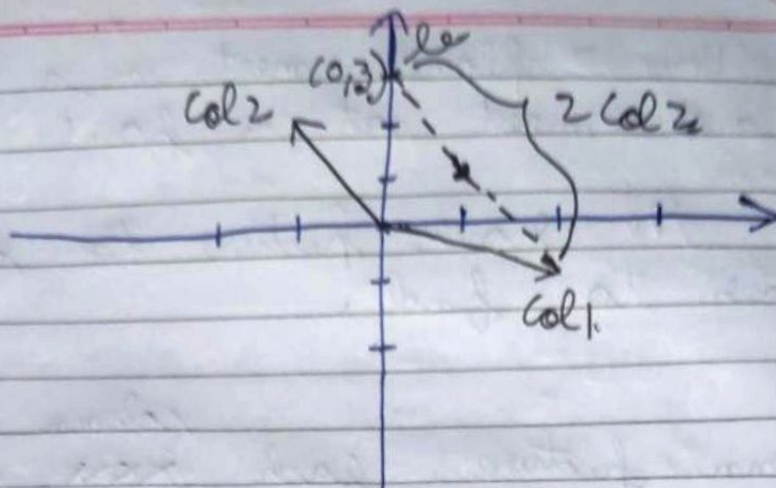 (0,3)
Col 2
2 Col 2
Col 1